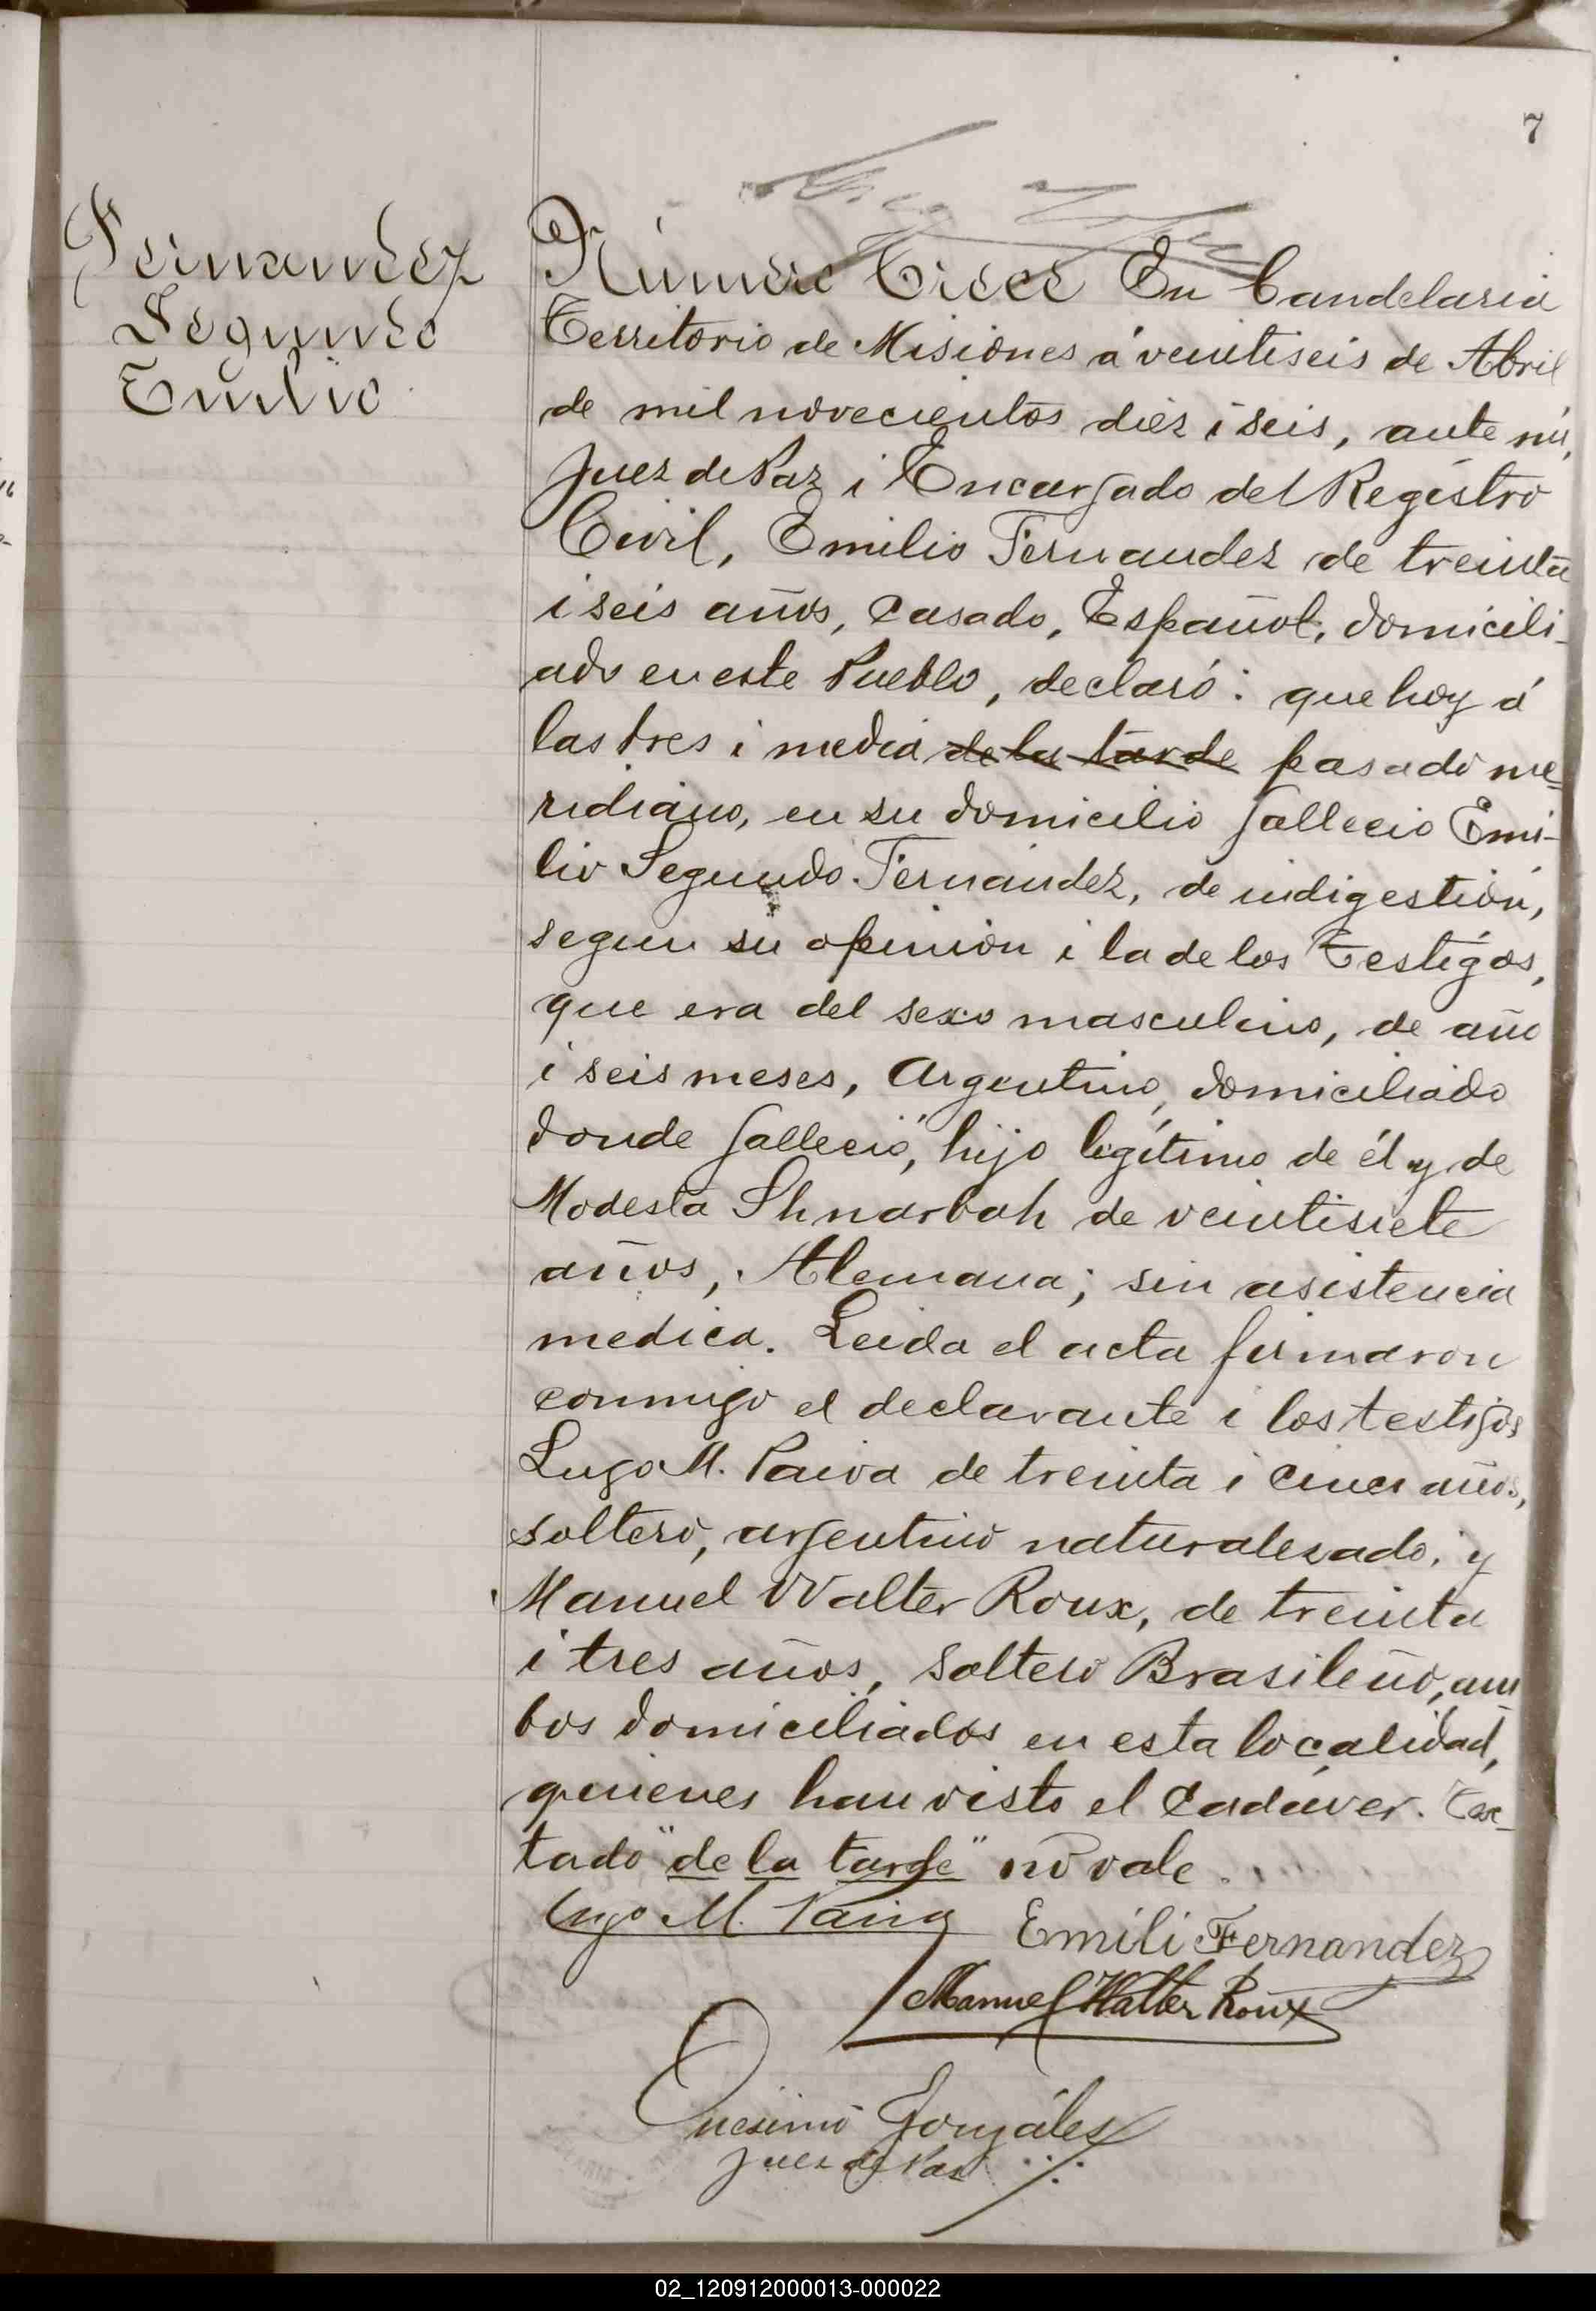 7
Fernandez
Segundo
Emilio
Número Trece En Candelaria
Territorio de Misiones á veintiseis de Abril
de mil novecientos diez i seis, ante mi,
Juez de Paz i Encargado del Registro
Civil, Emilio Fernandez de treinta
i seis años, Casado, Español, domicili-
ado en este Pueblo, declaró: que hoy á
las tres i media de la tarde pasado me-
ridiano, en su domicilio fallecio Emi-
lio Segundo Fernández, de indigestión,
segun su opinión i la de los Testigos,
que era del sexo masculino, de año
i seis meses, Argentino, domiciliado
donde falleció, hijo legítimo de él y de
Modesta Shnarbah de veintisiete
años, Alemana; sin asistencia
medica. Leida el acta firmaron
conmigo el declarante i los testigos
Lugo M. Paiva de treinta i cinco años,
soltero, argentino naturalezado, y
Manuel Walter Roux, de treinta
i tres años, soltero Brasileño, am
bos domiciliados en esta localidad,
quienes han visto el Cadáver. Tes-
tado "de la tarde" no vale.
Lugo M. Paiva
Emili Fernandez
Manuel Walter Roux
Onesimo Gonzáles
Juez de Paz
02_120912000013-000022